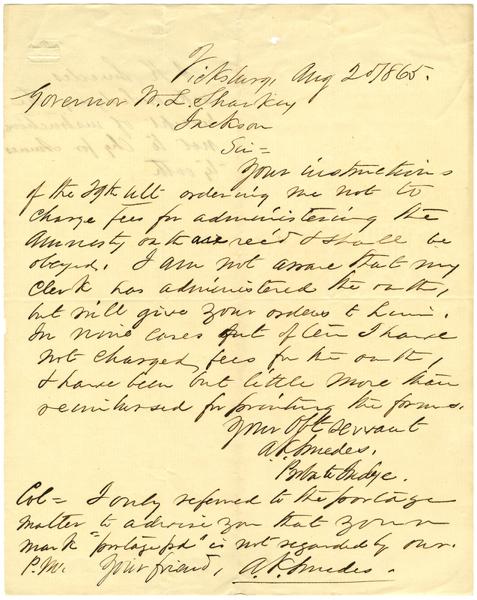 Vicksburg, Aug 2d 1865.
Governor W. L. Sharkey
Jackson
Sir=
Your instructions
of the 29th ult ordering me not to
charge fees for administering the
Amnesty oath are rec'd & shall be
obeyed. I am not aware that my
Clerk has administered the oath,
but will give your orders to him.
In nine cases out of ten I have
not charged fees for the oath,
& have been but little more than
reimbursed for printing the forms.
Your Obt servant
A. K. Smedes.
Probate Judge.
Col= I only referred to the postage
matter to advise you that your
mark "postage pd" is not regarded by our
P.M. Your friend, A. K. Smedes.